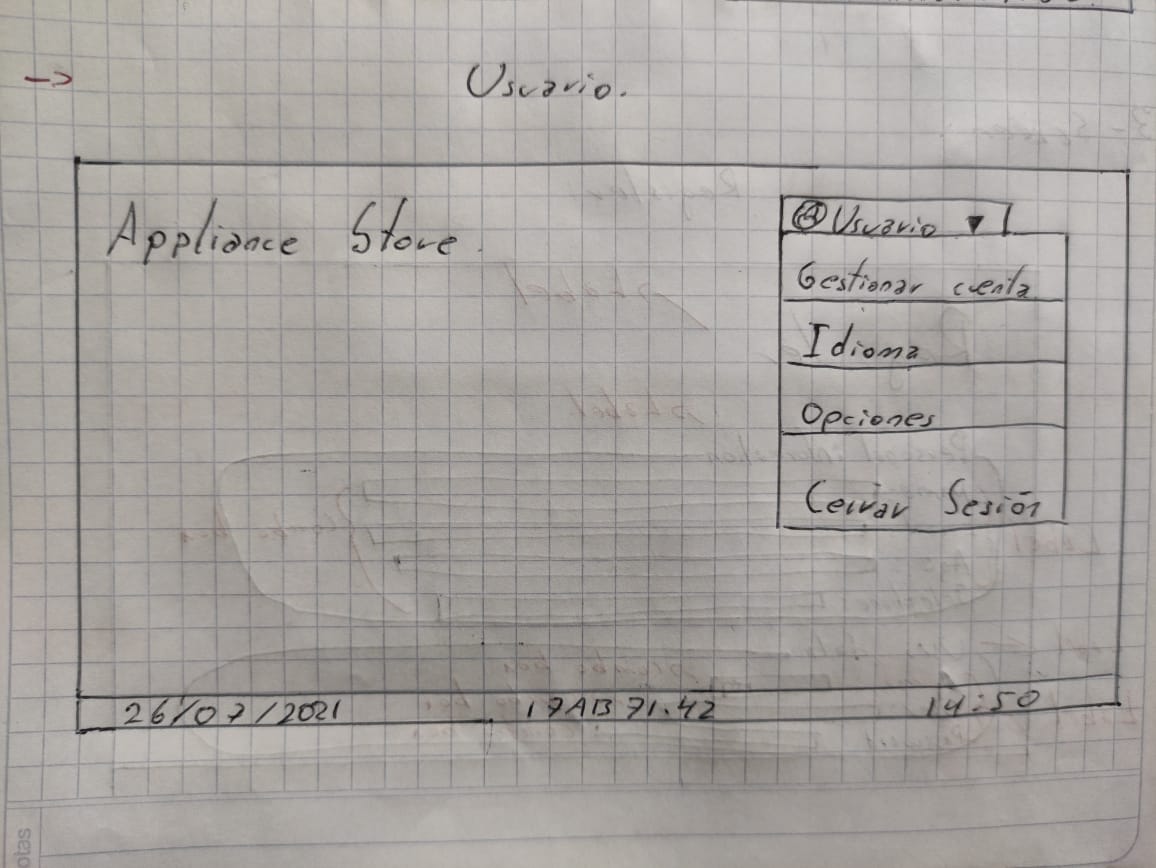 Usuario.
Appliance Store.
Usuario ▼
Gestionar cuenta
Idioma
Opciones
Cerrar Sesión
26/07/2021 17AB71.42 14:50
otas